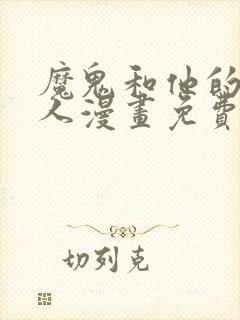 魔鬼和他的
人漫畫免費
切列克